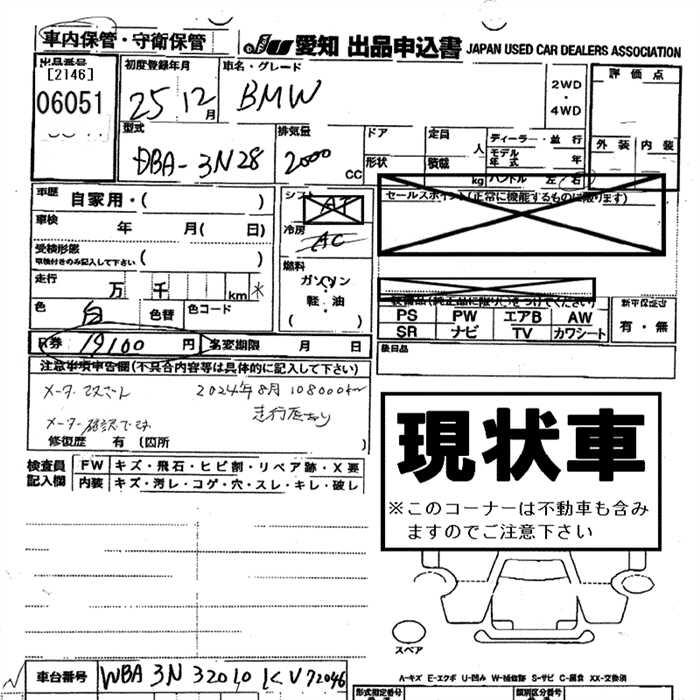 車内保管・守衛保管
JU 愛知 出品申込書 JAPAN USED CAR DEALERS ASSOCIATION
出品番号
[2146]
06051
初度登録年月
25 12月
車名・グレード
BMW
2WD
・
4WD
評価点
外装 内装
型式
DBA-3N28
排気量
2000 CC
ドア
形状
定員 人
積載 kg
ディーラー・並行
モデル年式 年
ハンドル 左・右
車歴 自家用・( )
車検 年 月( 日)
受検形態
車検付きのみ記入して下さい ( )
走行 万 千 km *
色 白 色替 色コード
シフト AT
冷房 AC
燃料
ガソリン
軽・油
( )
セールスポイント(正常に機能するものに限ります)
装備品(純正品に限り○をつけてください)
PS PW エアB AW
SR ナビ TV カワシート
新車保証書
有・無
R券 19100 円 名変期限 月 日
後日品
注意事項申告欄(不具合内容等は具体的に記入して下さい)
メーター改ざん 2024年8月 108000km
走行歴あり
修復歴 有(箇所 )
検査員記入欄
FW キズ・飛石・ヒビ割・リペア跡・X要
内装 キズ・汚レ・コゲ・穴・スレ・キレ・破レ
現状車
※このコーナーは不動車も含み
ますのでご注意下さい
スペア
A-キズ E-エクボ U-凹み W-補修跡 S-サビ C-腐食 XX-交換済
車台番号 WBA3N32010KV72046
形式指定番号 類別区分番号